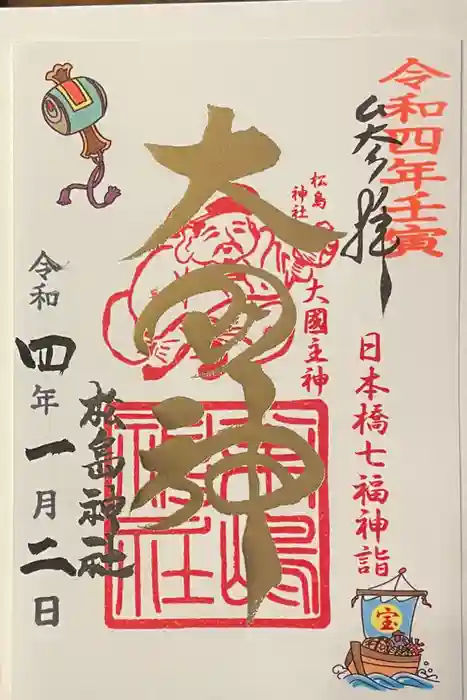 令和四年壬寅
参拝
日本橋七福神詣
宝
松島
神社
大國主神
大国神
松島
神社
松島神社
令和四年一月二日